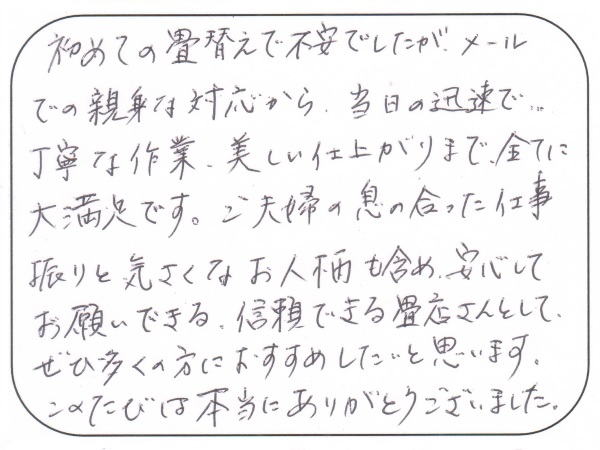 初めての畳替えで不安でしたが、メール
での親身な対応から、当日の迅速で
丁寧な作業、美しい仕上がりまで、全てに
大満足です。ご夫婦の息の合った仕事
振りと気さくなお人柄も含め、安心して
お願いできる、信頼できる畳店さんとして、
ぜひ多くの方におすすめしたいと思います。
このたびは本当にありがとうございました。